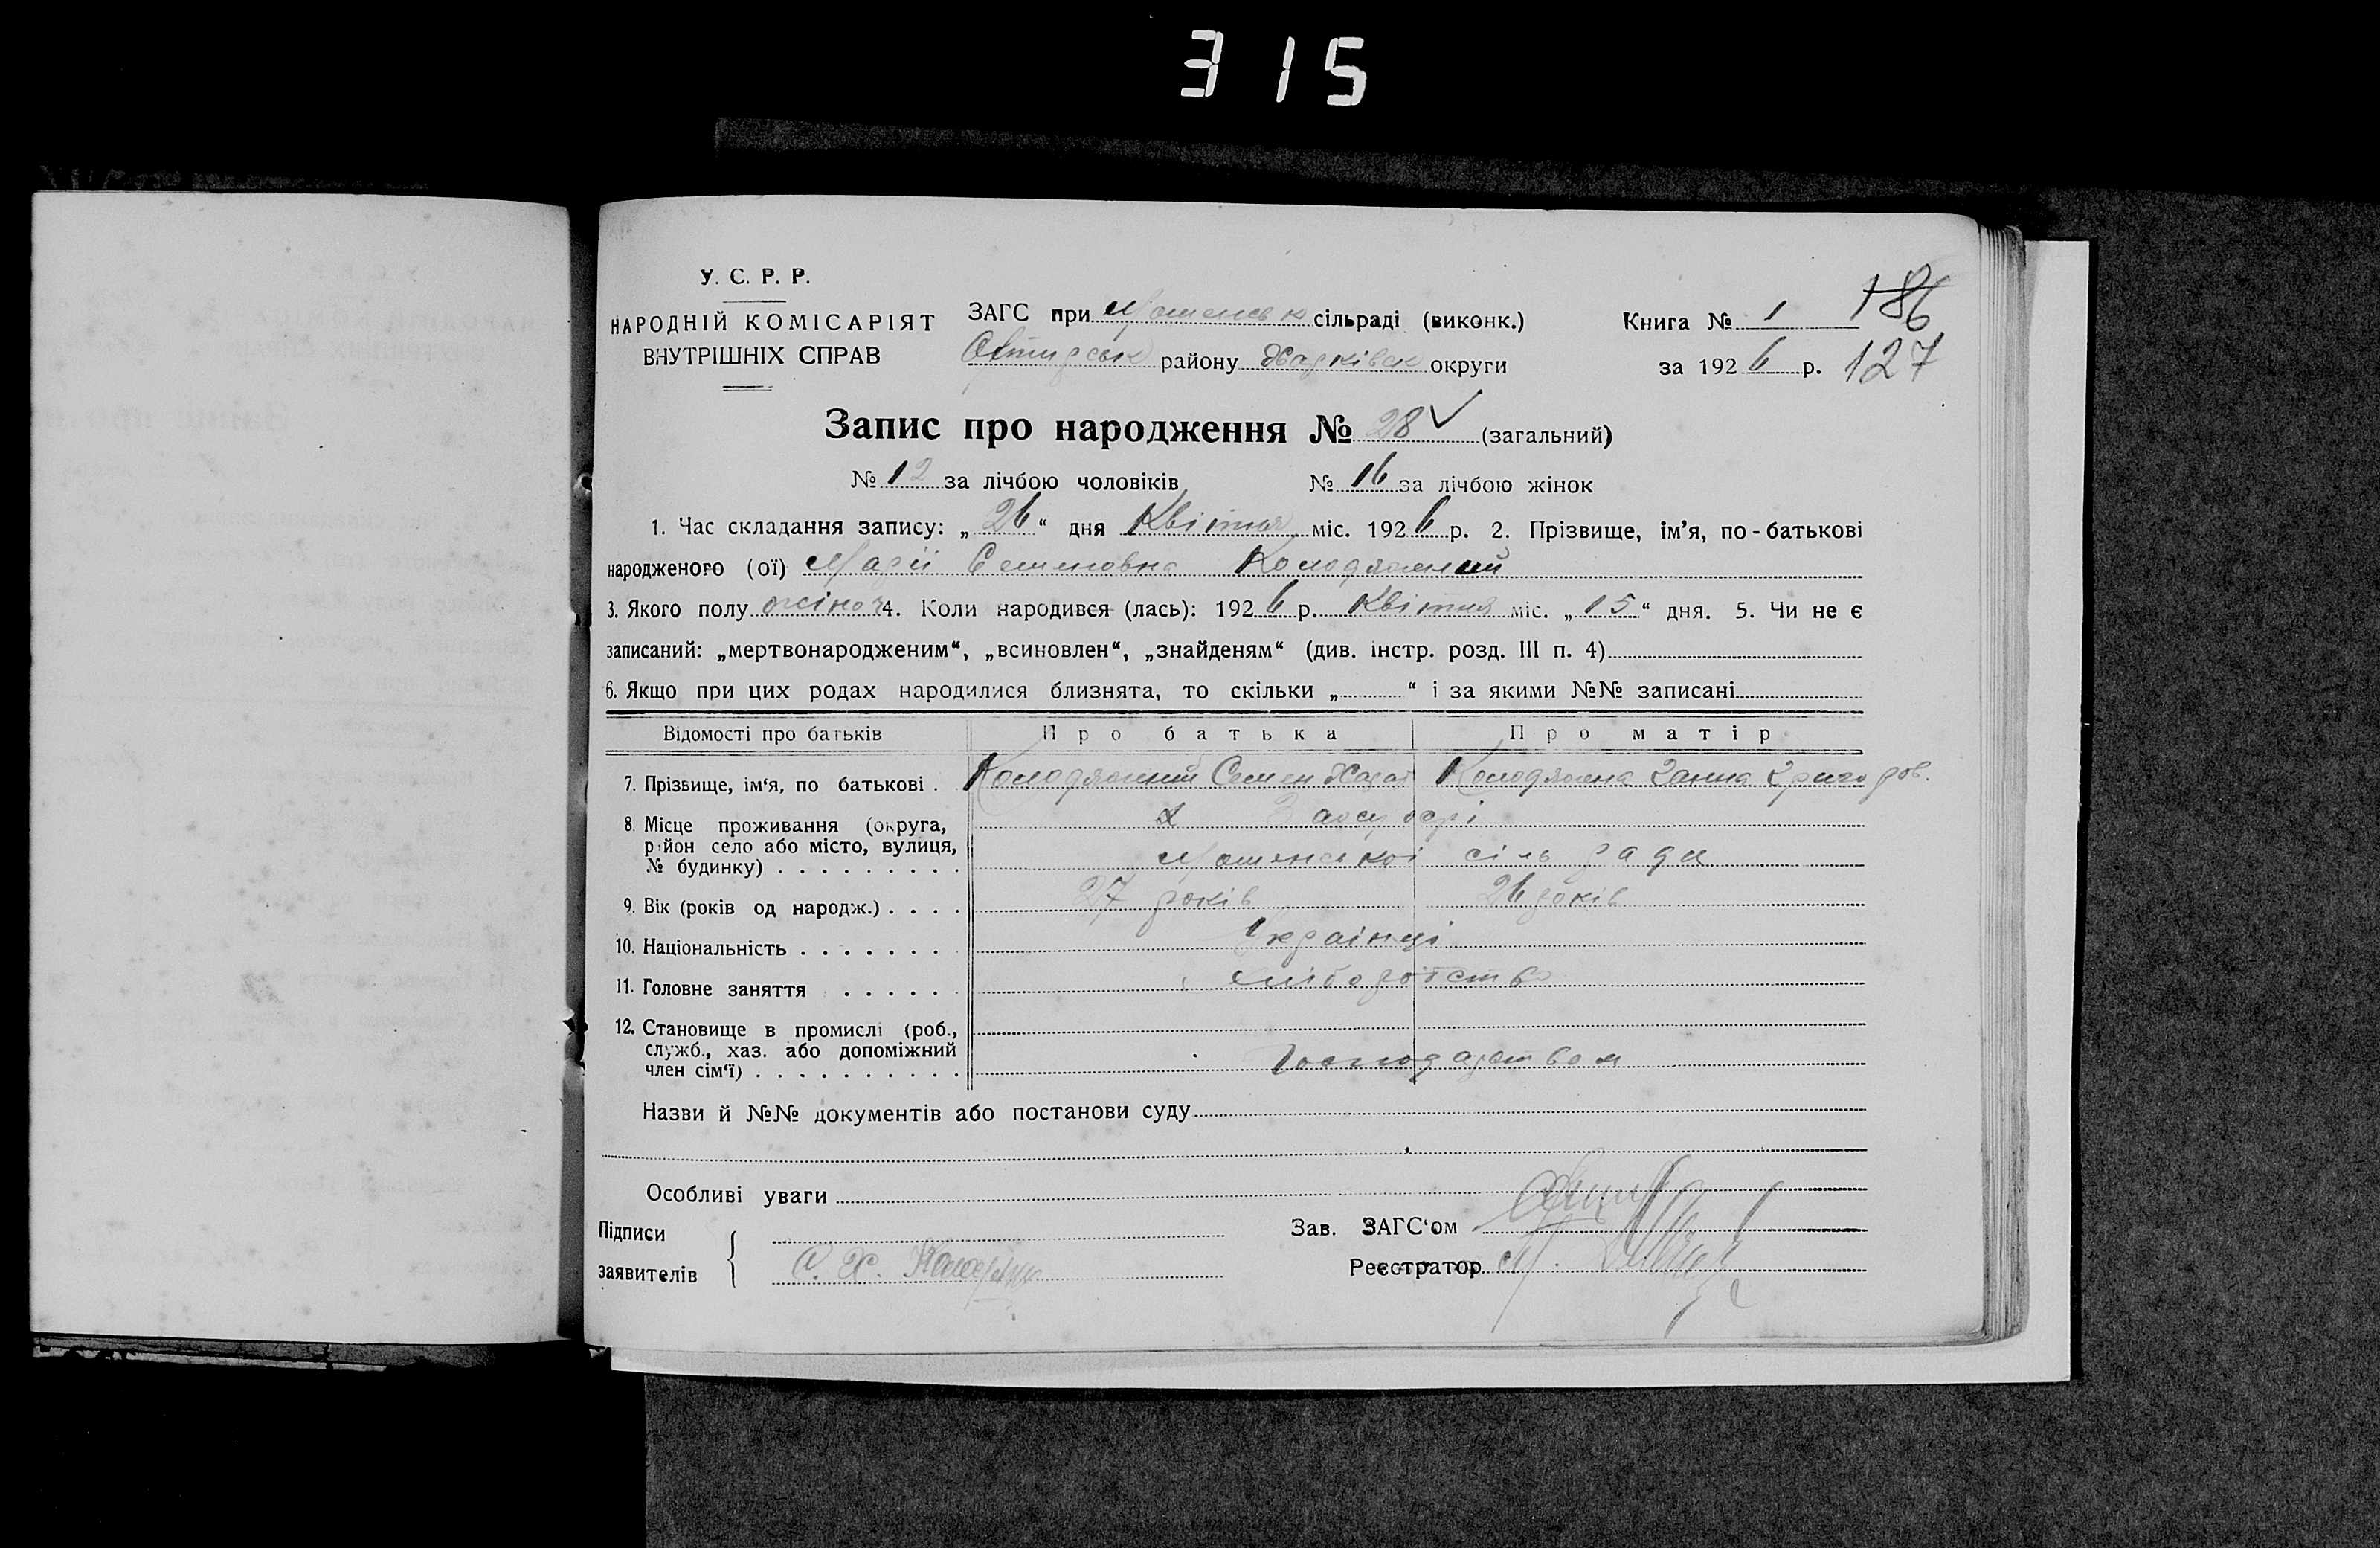 315
У. С. Р. Р.
НАРОДНІЙ КОМІСАРІЯТ
ВНУТРІШНІХ СПРАВ
ЗАГС при сільраді (виконк.)
району Харківськ округи
Книга № 1
186
за 1926 р. 127
Запис про народження № 28 (загальний)
№ 12 за лічбою чоловіків № 16 за лічбою жінок
1. Час складання запису: „26“ дня Квітня міс. 1926 р. 2. Прізвище, ім’я, по-батькові
народженого (ої) Марії Семеновна
3. Якого полу жіноч 4. Коли народився (лась): 1926 р. Квітня міс. „15“ дня. 5. Чи не є
записаний: „мертвонародженим“, „всиновлен“, „знайденям“ (див. інстр. розд. III п. 4)
6. Якщо при цих родах народилися близнята, то скільки „ “ і за якими №№ записані
Відомості про батьків Про батька Про матір
7. Прізвище, ім‘я, по батькові . Семен Колодяжна Ганна
8. Місце проживання (округа,
район село або місто, вулиця, сіль ради
№ будинку) . . . . . . . . .
9. Вік (років од народж.) . . . . 27 років 26 років
10. Національність . . . . . . . Українці
11. Головне заняття . . . . . . хліборобство
12. Становище в промислі (роб.,
служб., хаз. або допоміжний
член сім‘ї) . . . . . . . . . . Господарством
Назви й №№ документів або постанови суду
Особливі уваги
Підписи
заявителів
С. Х.
Зав. ЗАГС‘ом
Реєстратор